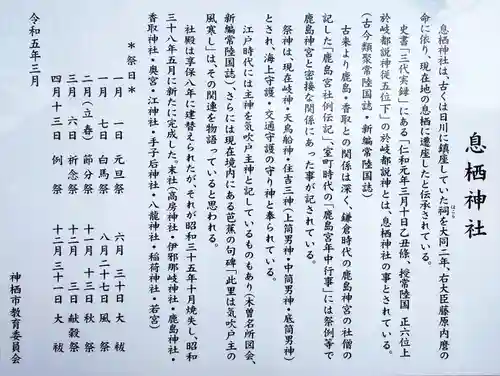 息栖神社
息栖神社は、古くは日川に鎮座していた祠(ほこら)を大同二年、右大臣藤原内麿の
命に依り、現在地の息栖に遷座したと伝承されている。
史書「三代実録」にある「仁和元年三月十日乙丑條、授常陸国 正六位上
於岐都説神従五位下」の於岐都説神とは、息栖神社の事とされている。
(古今類聚常陸国誌・新編常陸国誌)
古来より鹿島・香取との関係は深く、鎌倉時代の鹿島神宮の社僧の
記した「鹿島宮社例伝記」、室町時代の「鹿島宮年中行事」には祭例等で
鹿島神宮と密接な関係にあった事が記されている。
祭神は、現在岐神・天鳥船神・住吉三神(上筒男神・中筒男神・底筒男神)
とされ、海上守護・交通守護の守り神と奉られている。
江戸時代には主神を気吹戸主神と記しているものもあり(木曽名所図会、
新編常陸国誌)、さらには現在境内にある芭蕉の句碑「此里は気吹戸主の
風寒し」は、その関連を物語っていると思われる。
社殿は享保八年に建替えられたが、それが昭和三十五年十月焼失し、昭和
三十八年五月に新たに完成した。末社(高房神社・伊邪那岐神社・鹿島神社・
香取神社・奥宮・江神社・手子后神社・八龍神社・稲荷神社・若宮)
*祭日*
一月 一日 元旦祭 六月 三十日 大祓
一月 七日 白馬祭 八月 二十七日 風祭
二月(立春) 節分祭 十一月 十三日 秋祭
三月 六日 祈念祭 十二月 三日 献穀祭
四月 十三日 例祭 十二月 三十一日 大祓
令和五年三月
神栖市教育委員会